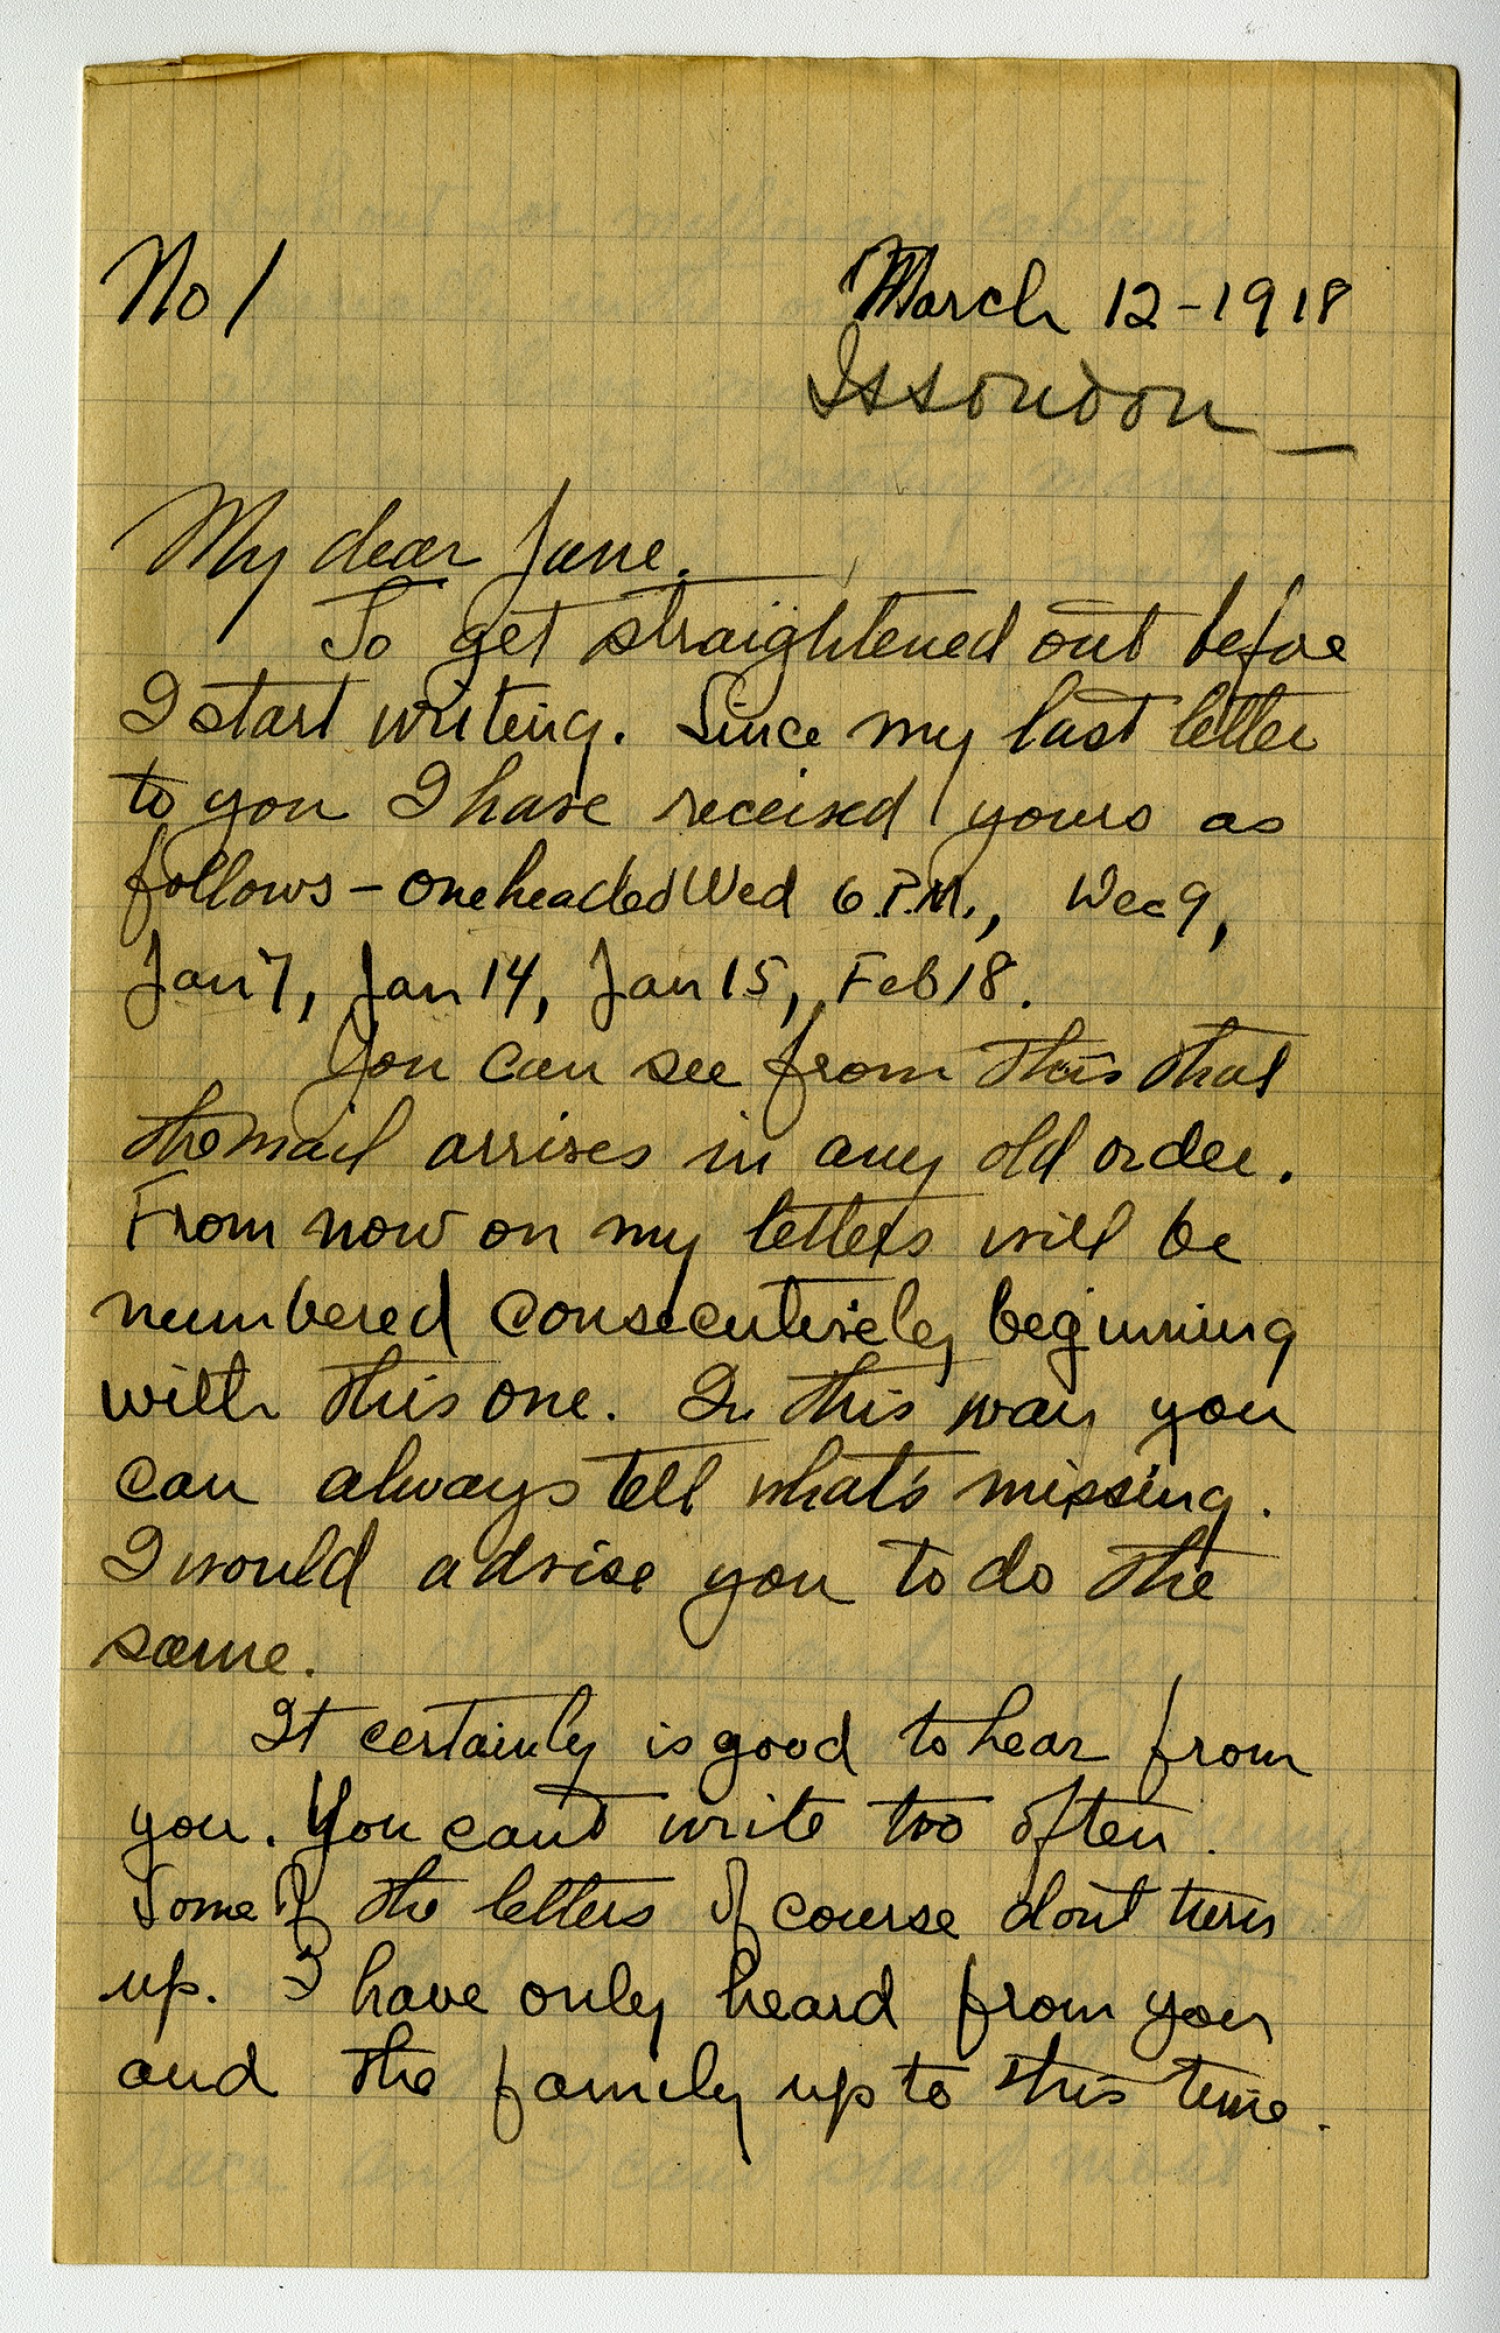 No 1 March 12-1918
Issoudon
My dear Jane.
To get straightened out before
I start writing. Since my last letter
to you I have received yours as
follows - one headed Wed 6 P.M., Dec 9,
Jan 7, Jan 14, Jan 15, Feb 18.
You can see from this that
the mail arrives in any old order.
From now on my letters will be
numbered consecutively beginning
with this one. In this way you
can always tell what's missing.
I would advise you to do the
same.
It certainly is good to hear from
you. You can't write too often.
Some of the letters of course don't turn
up. I have only heard from you
and the family up to this time.